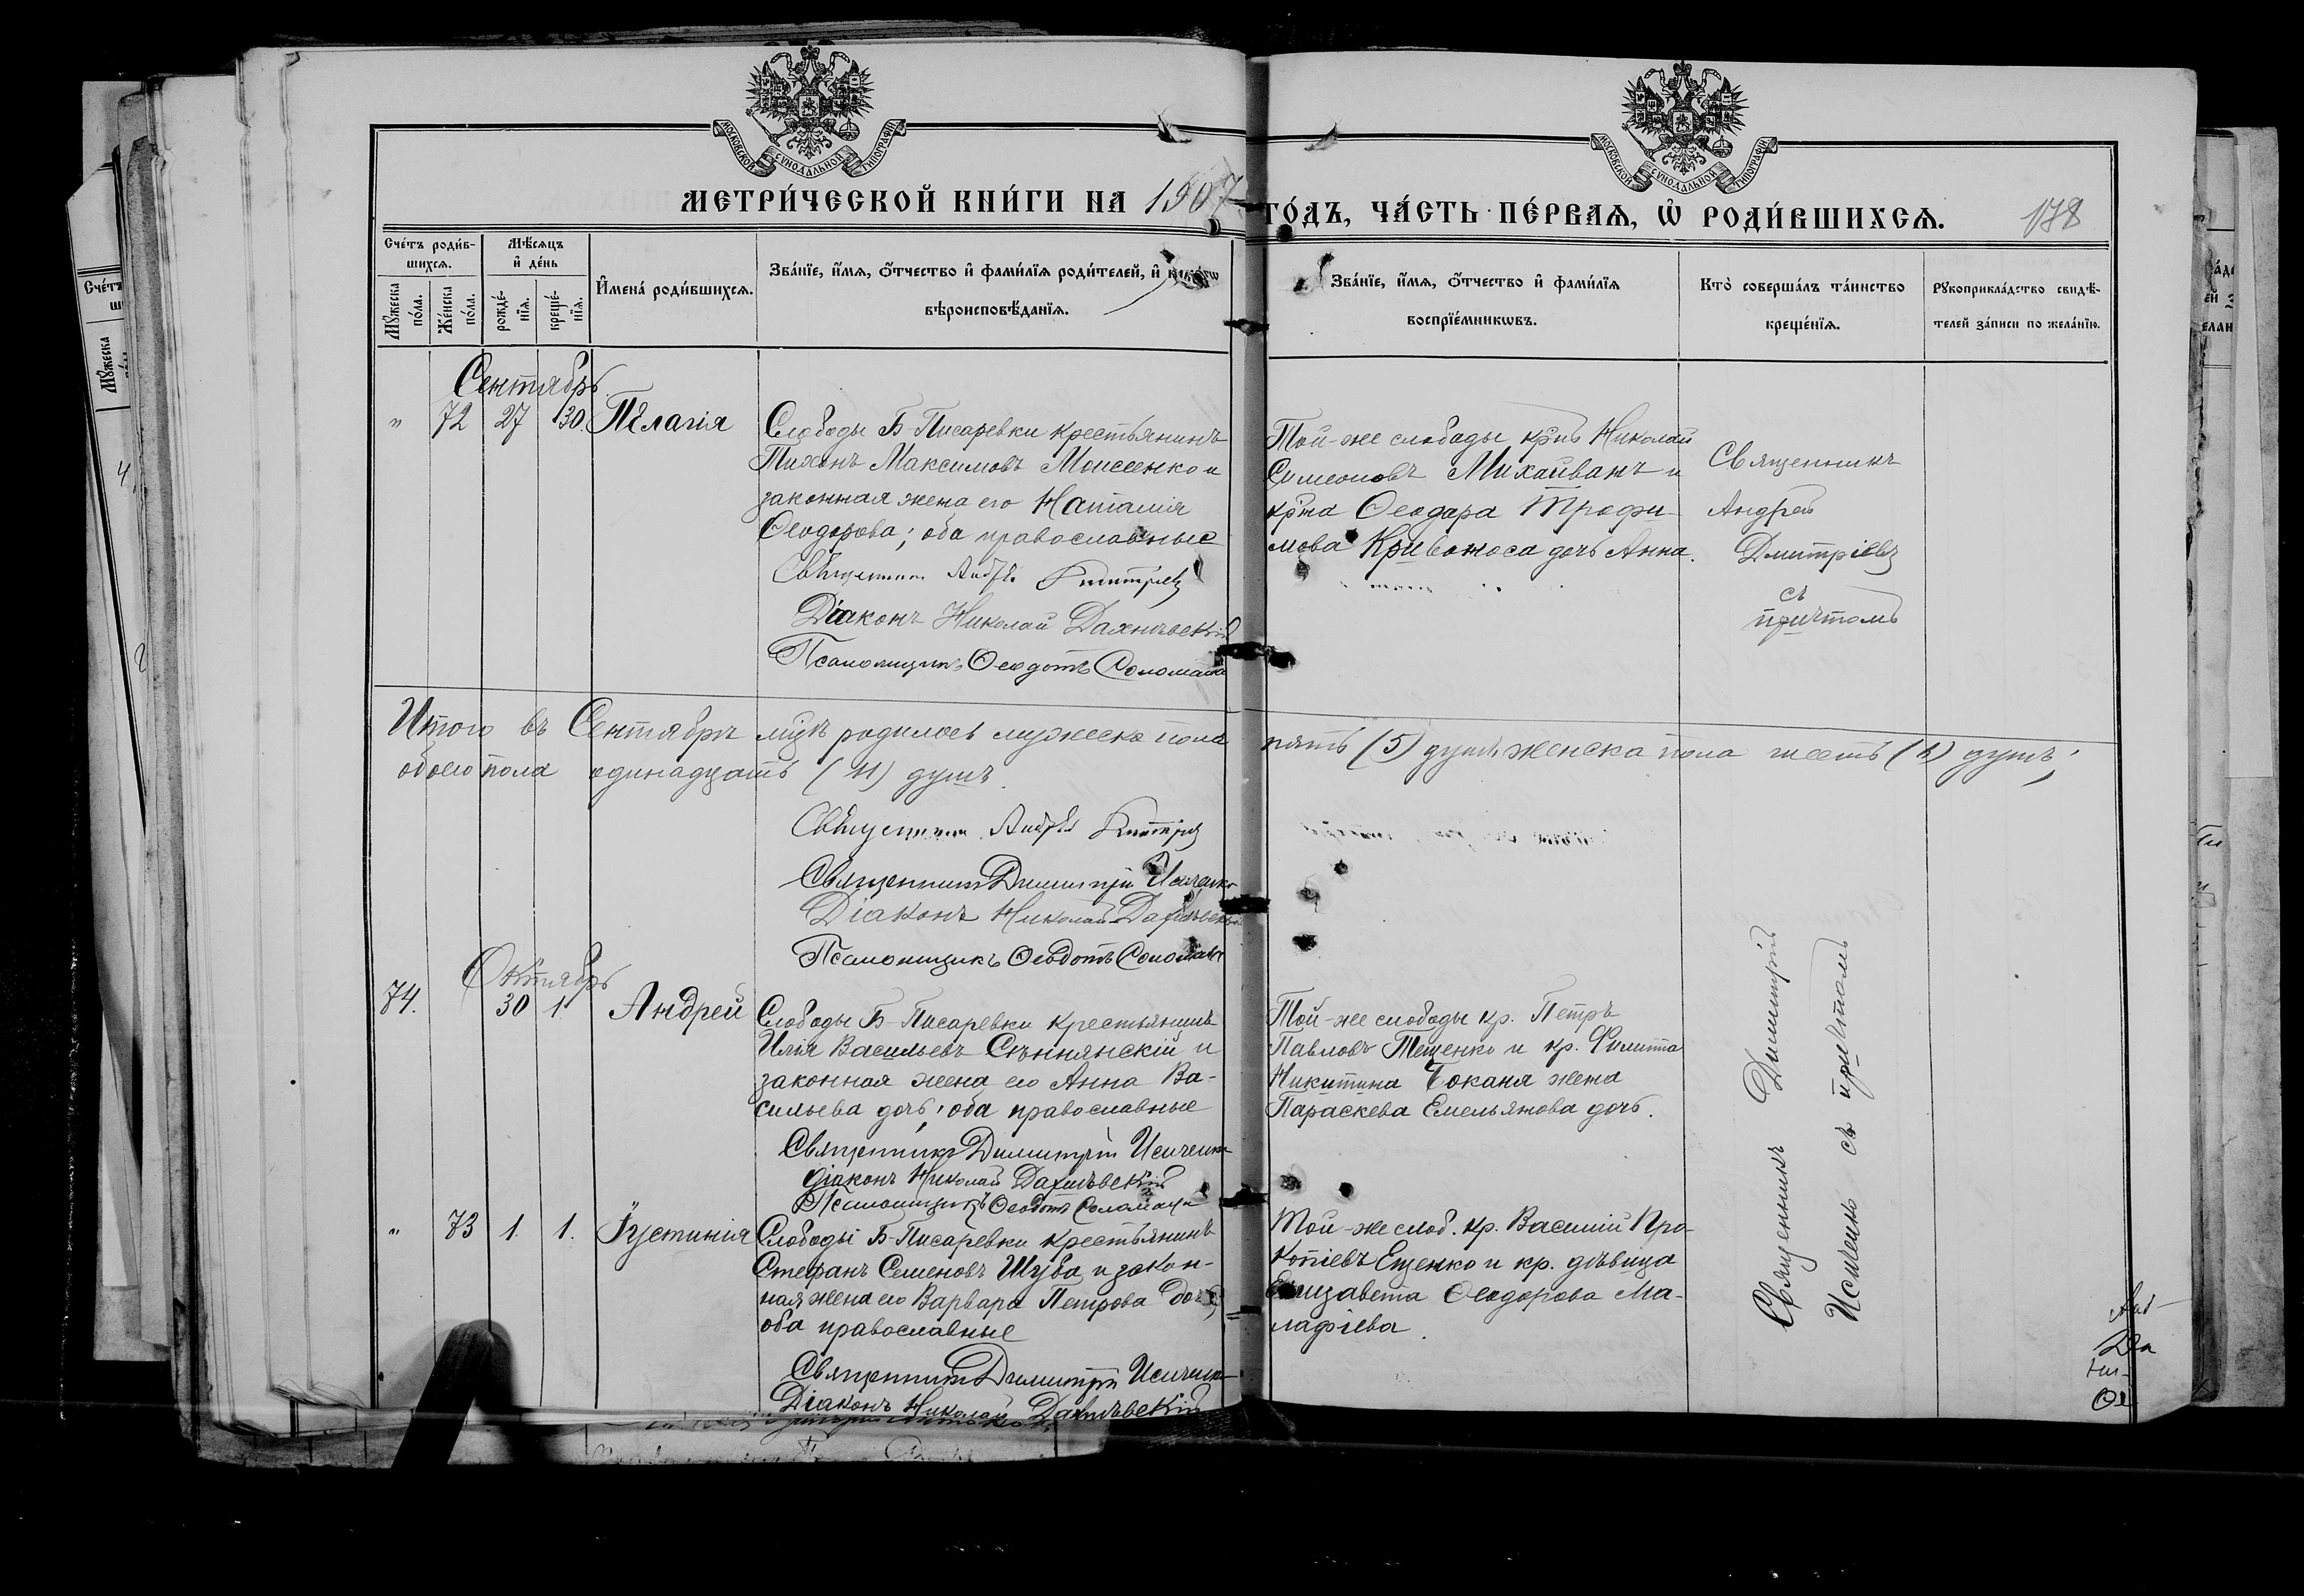 МОСКОВСКОЙ СѴНОДАЛЬНОЙ ТИПОГРАФІИ
МОСКОВСКОЙ СѴНОДАЛЬНОЙ ТИПОГРАФІИ
МЕТРИ́ЧЕСКОЙ КНИ́ГИ НА 1907 ГО́ДЪ, ЧА́СТЬ ПЕ́РВАѦ, Ѡ҆ РОДИ́ВШИХСѦ.
178
Сче́тъ роди́в-
шихсѧ.
Мꙋ́жеска по́ла.
Же́нска по́ла.
Мѣ́сѧцъ
и҆ де́нь
рожде́-
нїѧ.
креще́-
нїѧ.
И҆мена̀ роди́вшихсѧ.
Зва́нїе, и҆́мѧ, ѻ҆́тчество и҆ фами́лїѧ роди́телей, и҆ како́гѡ
вѣроисповѣ́данїѧ.
Зва́нїе, и҆́мѧ, ѻ҆́тчество и҆ фами́лїѧ
воспрїе́мникѡвъ.
Кто̀ соверша́лъ та́инство
креще́нїѧ.
Рꙋкоприкла́дство свидѣ́-
телей за́писи по жела́нїю.
Сентябрь
" 72 27 30. Пелагія
Слободы Б-Писаревки крестьянинъ
Тихонъ Максимовъ Моисеенко и
законная жена его Наталія
Ѳеодорова; оба православные
Священникъ Андрей Дмитріевъ
Діаконъ Николай Дахніевскій
Псаломщикъ Ѳеодотъ Соломаха
Той-же слободы кр-нъ Николай
Симеоновъ Михайванъ и
кр-на Ѳеодора Трофи-
мова Кривоноса дочь Анна.
Священникъ
Андрей
Дмитріевъ
съ
причтомъ
Итого въ Сентябрѣ мцѣ родилось мужеска пола пять (5) душъ женска пола шесть (6) душъ;
обоего пола одинадцать (11) душъ.
Священникъ Андрей Дмитріевъ
Священникъ Димитрій Исиченко
Діаконъ Николай Дахніевскій
Псаломщикъ Ѳеодотъ Соломаха
Октябрь
74. 30 1 Андрей
Слободы Б-Писаревки крестьянинъ
Илія Васильевъ Сѣннянскій и
законная жена его Анна Ва-
сильева дочь; оба православные
Священникъ Димитрій Исиченко
Діаконъ Николай Дахніевскій
Псаломщикъ Ѳеодотъ Соломаха
Той-же слободы кр. Петръ
Павловъ Тещенко и кр. Филиппа
Никитина Боканя жена
Параскева Емельянова дочь.
" 73 1. 1. Іустинія
Слободы Б-Писаревки крестьянинъ
Стефанъ Семеновъ Шуба и закон-
ная жена его Варвара Петрова дочь;
оба православные
Священникъ Димитрій Исиченко
Діаконъ Николай Дахніевскій
Той-же слоб. кр. Василій Про-
копіевъ Ещенко и кр. дѣвица
Елизавета Ѳеодорова Ма-
лафіева.
Священникъ Димитрій
Исиченко съ причтомъ